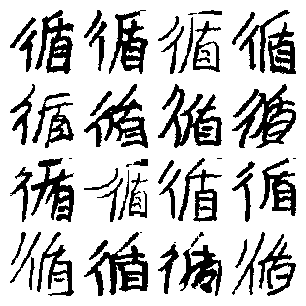 循循循循
循循循循
循循循循
循循循循